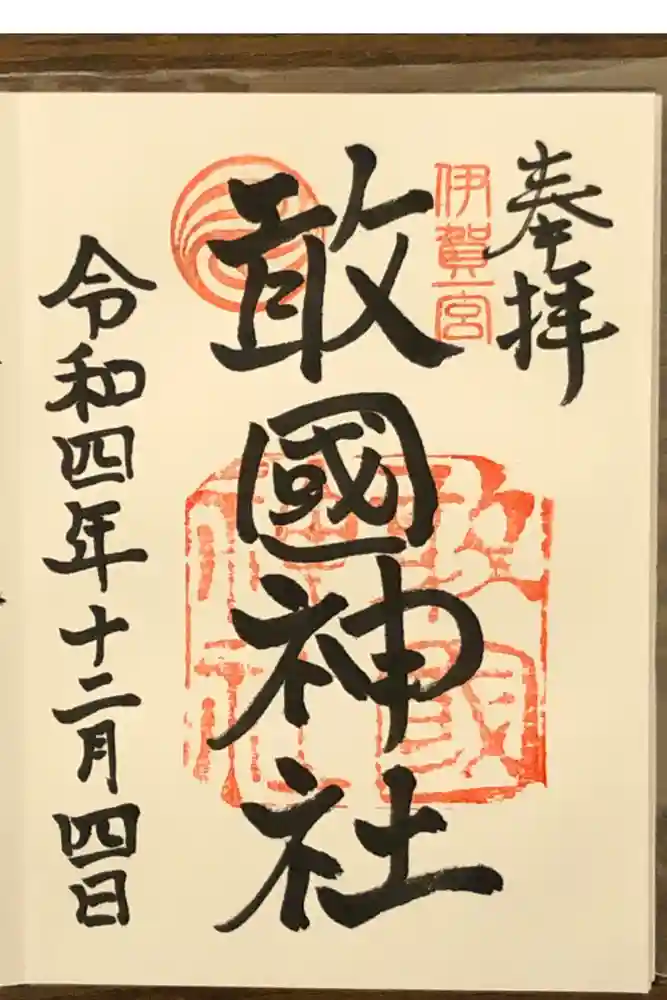 奉拝
伊賀一宮
敢國神社
敢國神社
令和四年十二月四日